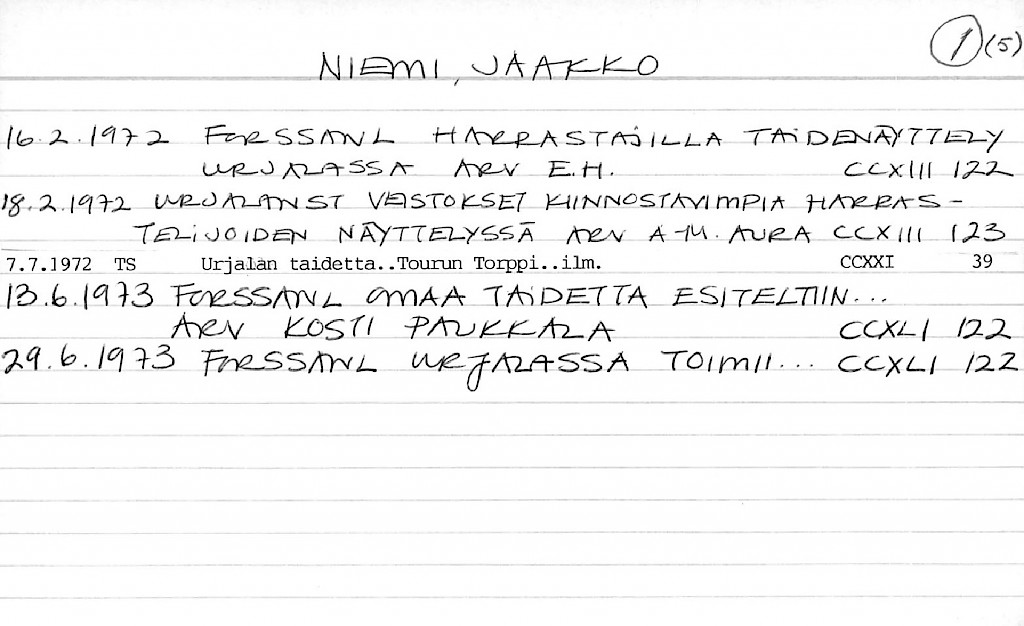 1 (5)
NIEMI, JAAKKO
16.2.1972 FORSSANL HARRASTAJILLA TAIDENÄYTTELY
URJALASSA ARV E.H. CCXIII 122
18.2.1972 URJALANST VEISTOKSET KIINNOSTAVIMPIA HARRAS-
TELIJOIDEN NÄYTTELYSSÄ ARV A-M. AURA CCXIII 123
7.7.1972 TS Urjalan taidetta..Tourun Torppi..ilm. CCXXI 39
13.6.1973 FORSSANL OMAA TAIDETTA ESITELTIIN...
ARV KOSTI PAUKKALA CCXLI 122
29.6.1973 FORSSANL URJALASSA TOIMII... CCXLI 122